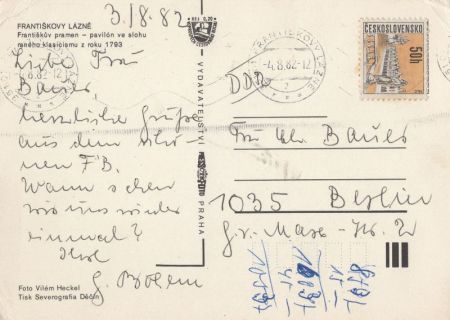 3./8.82
FRANTIŠKOVY LÁZNĚ
Františkův pramen – pavilón ve slohu
raného klasicismu z roku 1793
Liebe Frau
Bauer,
herzliche Grüße
aus dem schö-
nen FB.
Wann sehen
wir uns wieder
einmal?
G. Böhm
Foto Vilém Heckel
Tisk Severografia Děčín
VYDAVATELSTVÍ
PRAHA
FRANTIŠKOVY LÁZNĚ
-4.8.82-12
8.82-12
ČESKOSLOVENSKO
50h
DDR
Frau Bauer
1035 Berlin